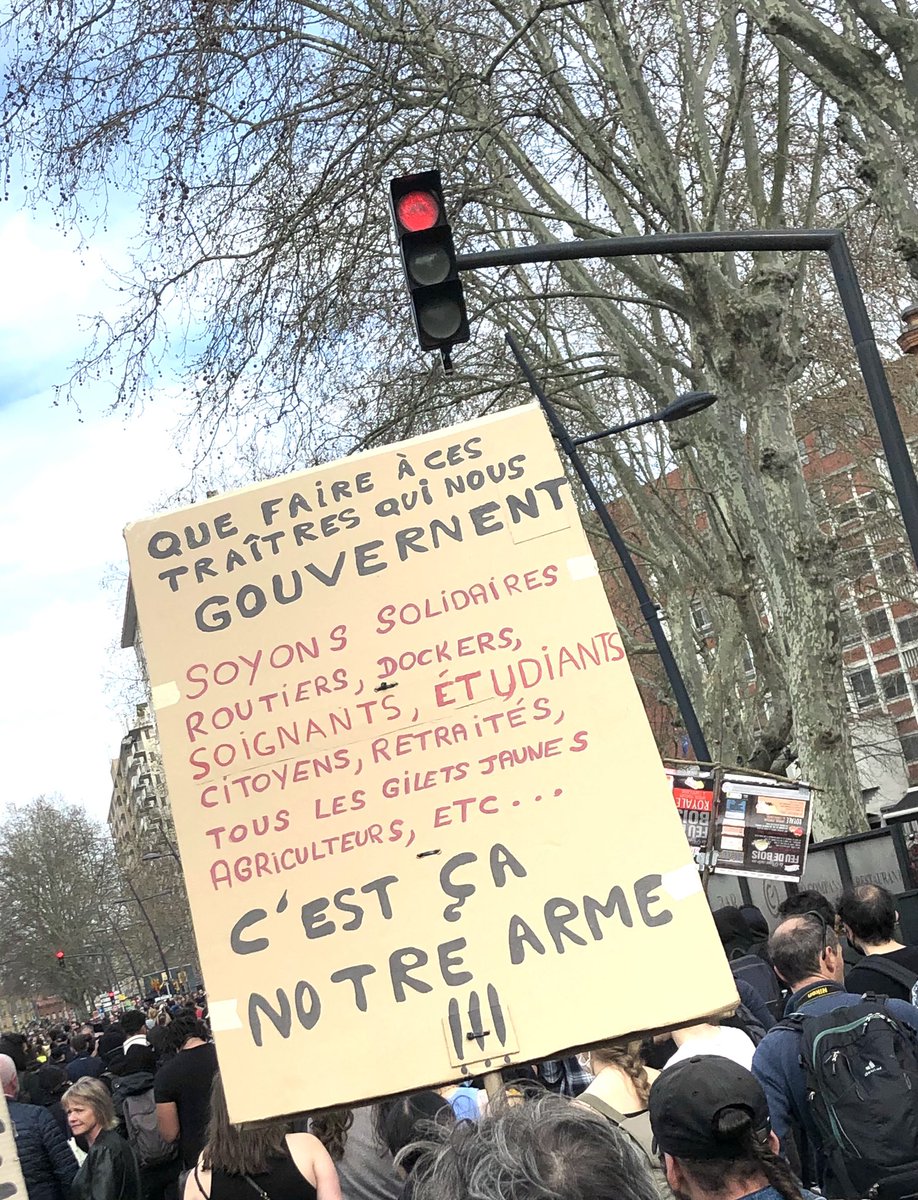 QUE FAIRE À CES
TRAÎTRES QUI NOUS
GOUVERNENT
SOYONS SOLIDAIRES
ROUTIERS, DOCKERS,
SOIGNANTS, ÉTUDIANTS
CITOYENS, RETRAITÉS,
TOUS LES GILETS JAUNES
AGRICULTEURS, ETC...
C'EST ÇA
NOTRE ARME
!!!
ROYALE
FEU DE
BOIS
FEU DE BOIS
RESTAURANT
Nikon